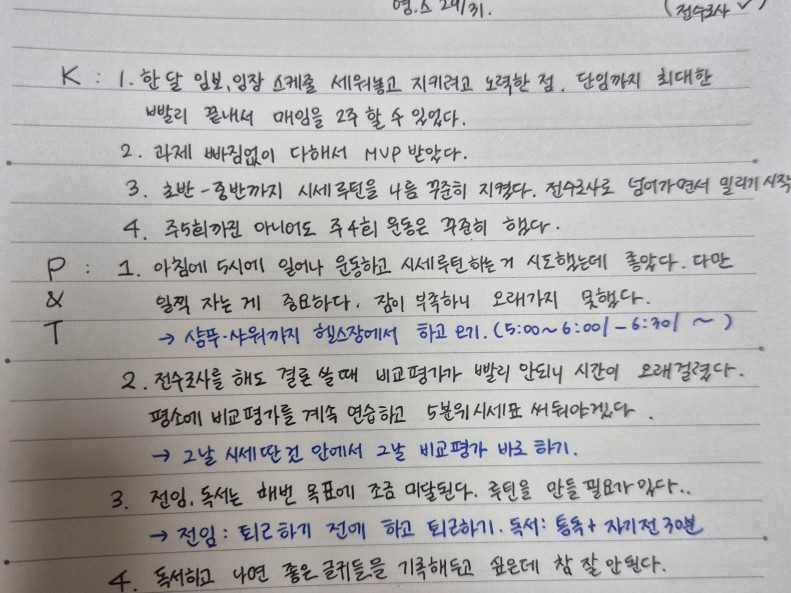 영.소 29/31.
(전수조사 ✓)
K : 1. 한달 임보, 임장 스케줄 세워놓고 지키려고 노력한 점. 단임까지 최대한
빨리 끝내서 매임을 2주 할 수 있었다.
2. 과제 빠짐없이 다해서 MVP 받았다.
3. 초반-중반까지 시세루틴을 나름 꾸준히 지켰다. 전수조사로 넘어가면서 밀리기 시작
4. 주5회까진 아니어도 주4회 운동은 꾸준히 했다.
P : 1. 아침에 5시에 일어나 운동하고 시세루틴하는거 시도했는데 좋았다. 다만
& 일찍 자는 게 중요하다. 잠이 부족하니 오래가지 못했다.
T → 샴푸·샤워까지 헬스장에서 하고 오기. (5:00~6:00/-6:30/ ~ )
2. 전수조사를 해도 결론 쓸 때 비교평가가 빨리 안되니 시간이 오래걸렸다.
평소에 비교평가를 계속 연습하고 5분위시세표 써둬야겠다.
→ 그날 시세 딴 것 안에서 그날 비교평가 바로 하기.
3. 전임, 독서는 매번 목표에 조금 미달된다. 루틴을 만들 필요가 있다..
→ 전임: 퇴근하기 전에 하고 퇴근하기. 독서: 통독 + 자기전 30분
4. 독서하고 나면 좋은 글귀들을 기록해두고 싶은데 참 잘 안된다.